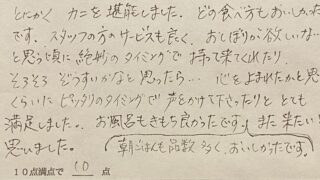 とにかく カニを堪能しました。どの食べ方もおいしかった
です。スタッフの方のサービスも良く、おしぼりが欲しいな…
と思う頃に絶妙のタイミングで持って来てくれたり、
そろそろ ぞうすいかなと思ったら… 心をよまれたかと思う
くらいに ピッタリのタイミングで 声をかけて下さったりと とても
満足しました。お風呂もきもち良かったです。また来たいと
思いました。朝ごはんも品数多く、おいしかったです。
10点満点で 10 点